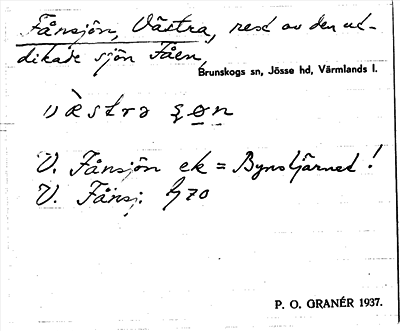 Fånsjön, Västra, rest av den ut-
dikade sjön Fåen,
Brunskogs sn, Jösse hd, Värmlands l.
V. Fånsjön ek = Bynstjärnet!
V. Fånsj:
P. O. GRANÉR 1937.